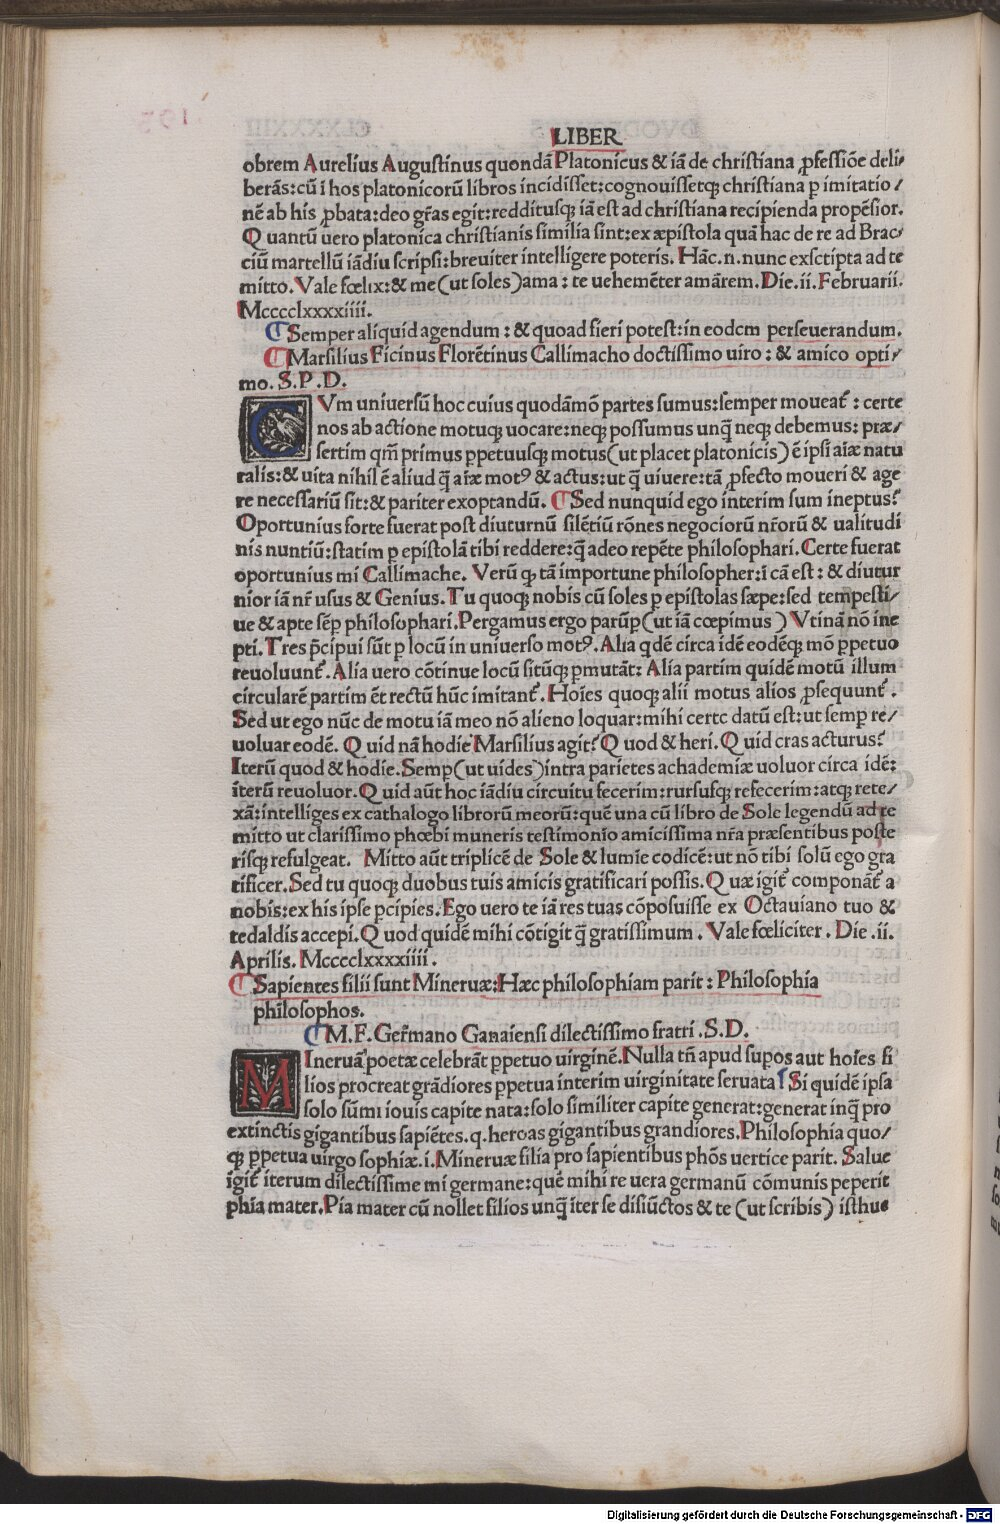 LIBER
obrem Aurelius Augustinus quondā Platonicus & iā de christiana ꝓfessiōe deli/
berās: cū ī hos platonicorū libros incidisset: cognouissetqꝫ christiana ꝑ imitatio/
nē ab his ꝓbata: deo gr̄as egit: redditusqꝫ iā est ad christiana recipienda propēsior.
Quantū uero platonica christianis similia sint: ex æpistola quā hac de re ad Brac/
ciū martellū iādiu scripsi: breuiter intelligere poteris. Hāc .n. nunc exsctipta ad te
mitto. Vale fœlix: & me (ut soles) ama: te uehemēter amārem. Die .ii. Februarii.
Mcccclxxxxiiii.
¶ Semper aliquid agendum: & quoad fieri potest: in eodcm perseuerandum.
¶ Marsilius Ficinus Florētinus Callimacho doctissimo uiro: & amico opti/
mo. S.P.D.
CVm uniuersū hoc cuius quodāmō partes sumus: semper moueat᷑: certe
nos ab actione motuqꝫ uocare: neqꝫ possumus unq̄ neqꝫ debemus: præ/
sertim qm̄ primus ꝑpetuusqꝫ motus (ut placet platonicis) ē ipsi aīæ natu
ralis: & uita nihil ē aliud q̄ aīæ motꝰ & actus: ut q̄ uiuere: tā ꝓfecto moueri & age
re necessariū sit: & pariter exoptandū. ¶ Sed nunquid ego interim sum ineptus?
Oportunius forte fuerat post diuturnū silētiū rōnes negociorū nr̄orū & ualitudi
nis nuntiū: statim ꝑ epistolā tibi reddere: q̄ adeo repēte philosophari. Certe fuerat
oportunius mi Callimache. Verū qꝫ tā importune philosopher: ī cā est: & diutur
nior iā nr̄ usus & Genius. Tu quoqꝫ nobis cū soles ꝑ epistolas sæpe: sed tempesti/
ue & apte sēꝑ philosophari. Pergamus ergo parūꝑ (ut iā cœpimus) Vtinā nō ine
pti. Tres p̄cipui sūt ꝑ locū in uniuerso motꝰ. Alia qdē circa idē eodēqꝫ mō ꝑpetuo
reuoluunt᷑. Alia uero cōtinue locū sitūqꝫ ꝑmutāt: Alia partim quidē motū illum
circularē partim ēt rectū hūc imitant᷑. Hoīes quoqꝫ alii motus alios ꝓsequunt᷑.
Sed ut ego nūc de motu iā meo nō alieno loquar: mihi certc datū est: ut semꝑ re/
uoluar eodē. Quid nā hodie Marsilius agit? Quod & heri. Quid cras acturus?
Iterū quod & hodie. Semꝑ (ut uides) intra parietes achademiæ uoluor circa idē:
īterū reuoluor. Quid aūt hoc iādiu circuitu fecerim: rursusqꝫ refecerim: atqꝫ rete/
xā: intelliges ex cathalogo librorū meorū: quē una cū libro de Sole legendū ad te
mitto ut clarissimo phœbi muneris testimonio amicissima nr̄a præsentibus poste
risqꝫ refulgeat. Mitto aūt triplicē de Sole & lumīe codicē: ut nō tibi solū ego gra
tificer. Sed tu quoqꝫ duobus tuis amicis gratificari possis. Quæ igit᷑ componāt᷑ a
nobis: ex his ipse ꝑcipies. Ego uero te iā res tuas cōposuisse ex Octauiano tuo &
tedaldis accepi. Quod quidē mihi cōtigit q̄ gratissimum. Vale fœliciter. Die .ii.
Aprilis. Mcccclxxxxiiii.
¶ Sapientes filii sunt Mineruæ: Hæc philosophiam parit: Philosophia
philosophos.
¶ M.F. Germano Ganaiensi dilectissimo fratri. S.D.
MIneruā poetæ celebrāt ꝑpetuo uirginē. Nulla tn̄ apud suꝑos aut hoīes fi
lios procreat grādiores ꝑpetua interim uirginitate seruata Si quidē ipsa
solo sūmi iouis capite nata: solo similiter capite generat: generat inq̄ pro
extinctis gigantibus sapiētes .q. heroas gigantibus grandiores. Philosophia quo/
qꝫ ꝑpetua uirgo sophiæ .i. Mineruæ filia pro sapientibus phōs uertice parit. Salue
igit᷑ iterum dilectissime mi germane: quē mihi re uera germanū cōmunis peperit
phīa mater. Pia mater cū nollet filios unq̄ iter se disiūctos & te (ut scribis) isthuc
Digitalisierung gefördert durch die Deutsche Forschungsgemeinschaft - DFG